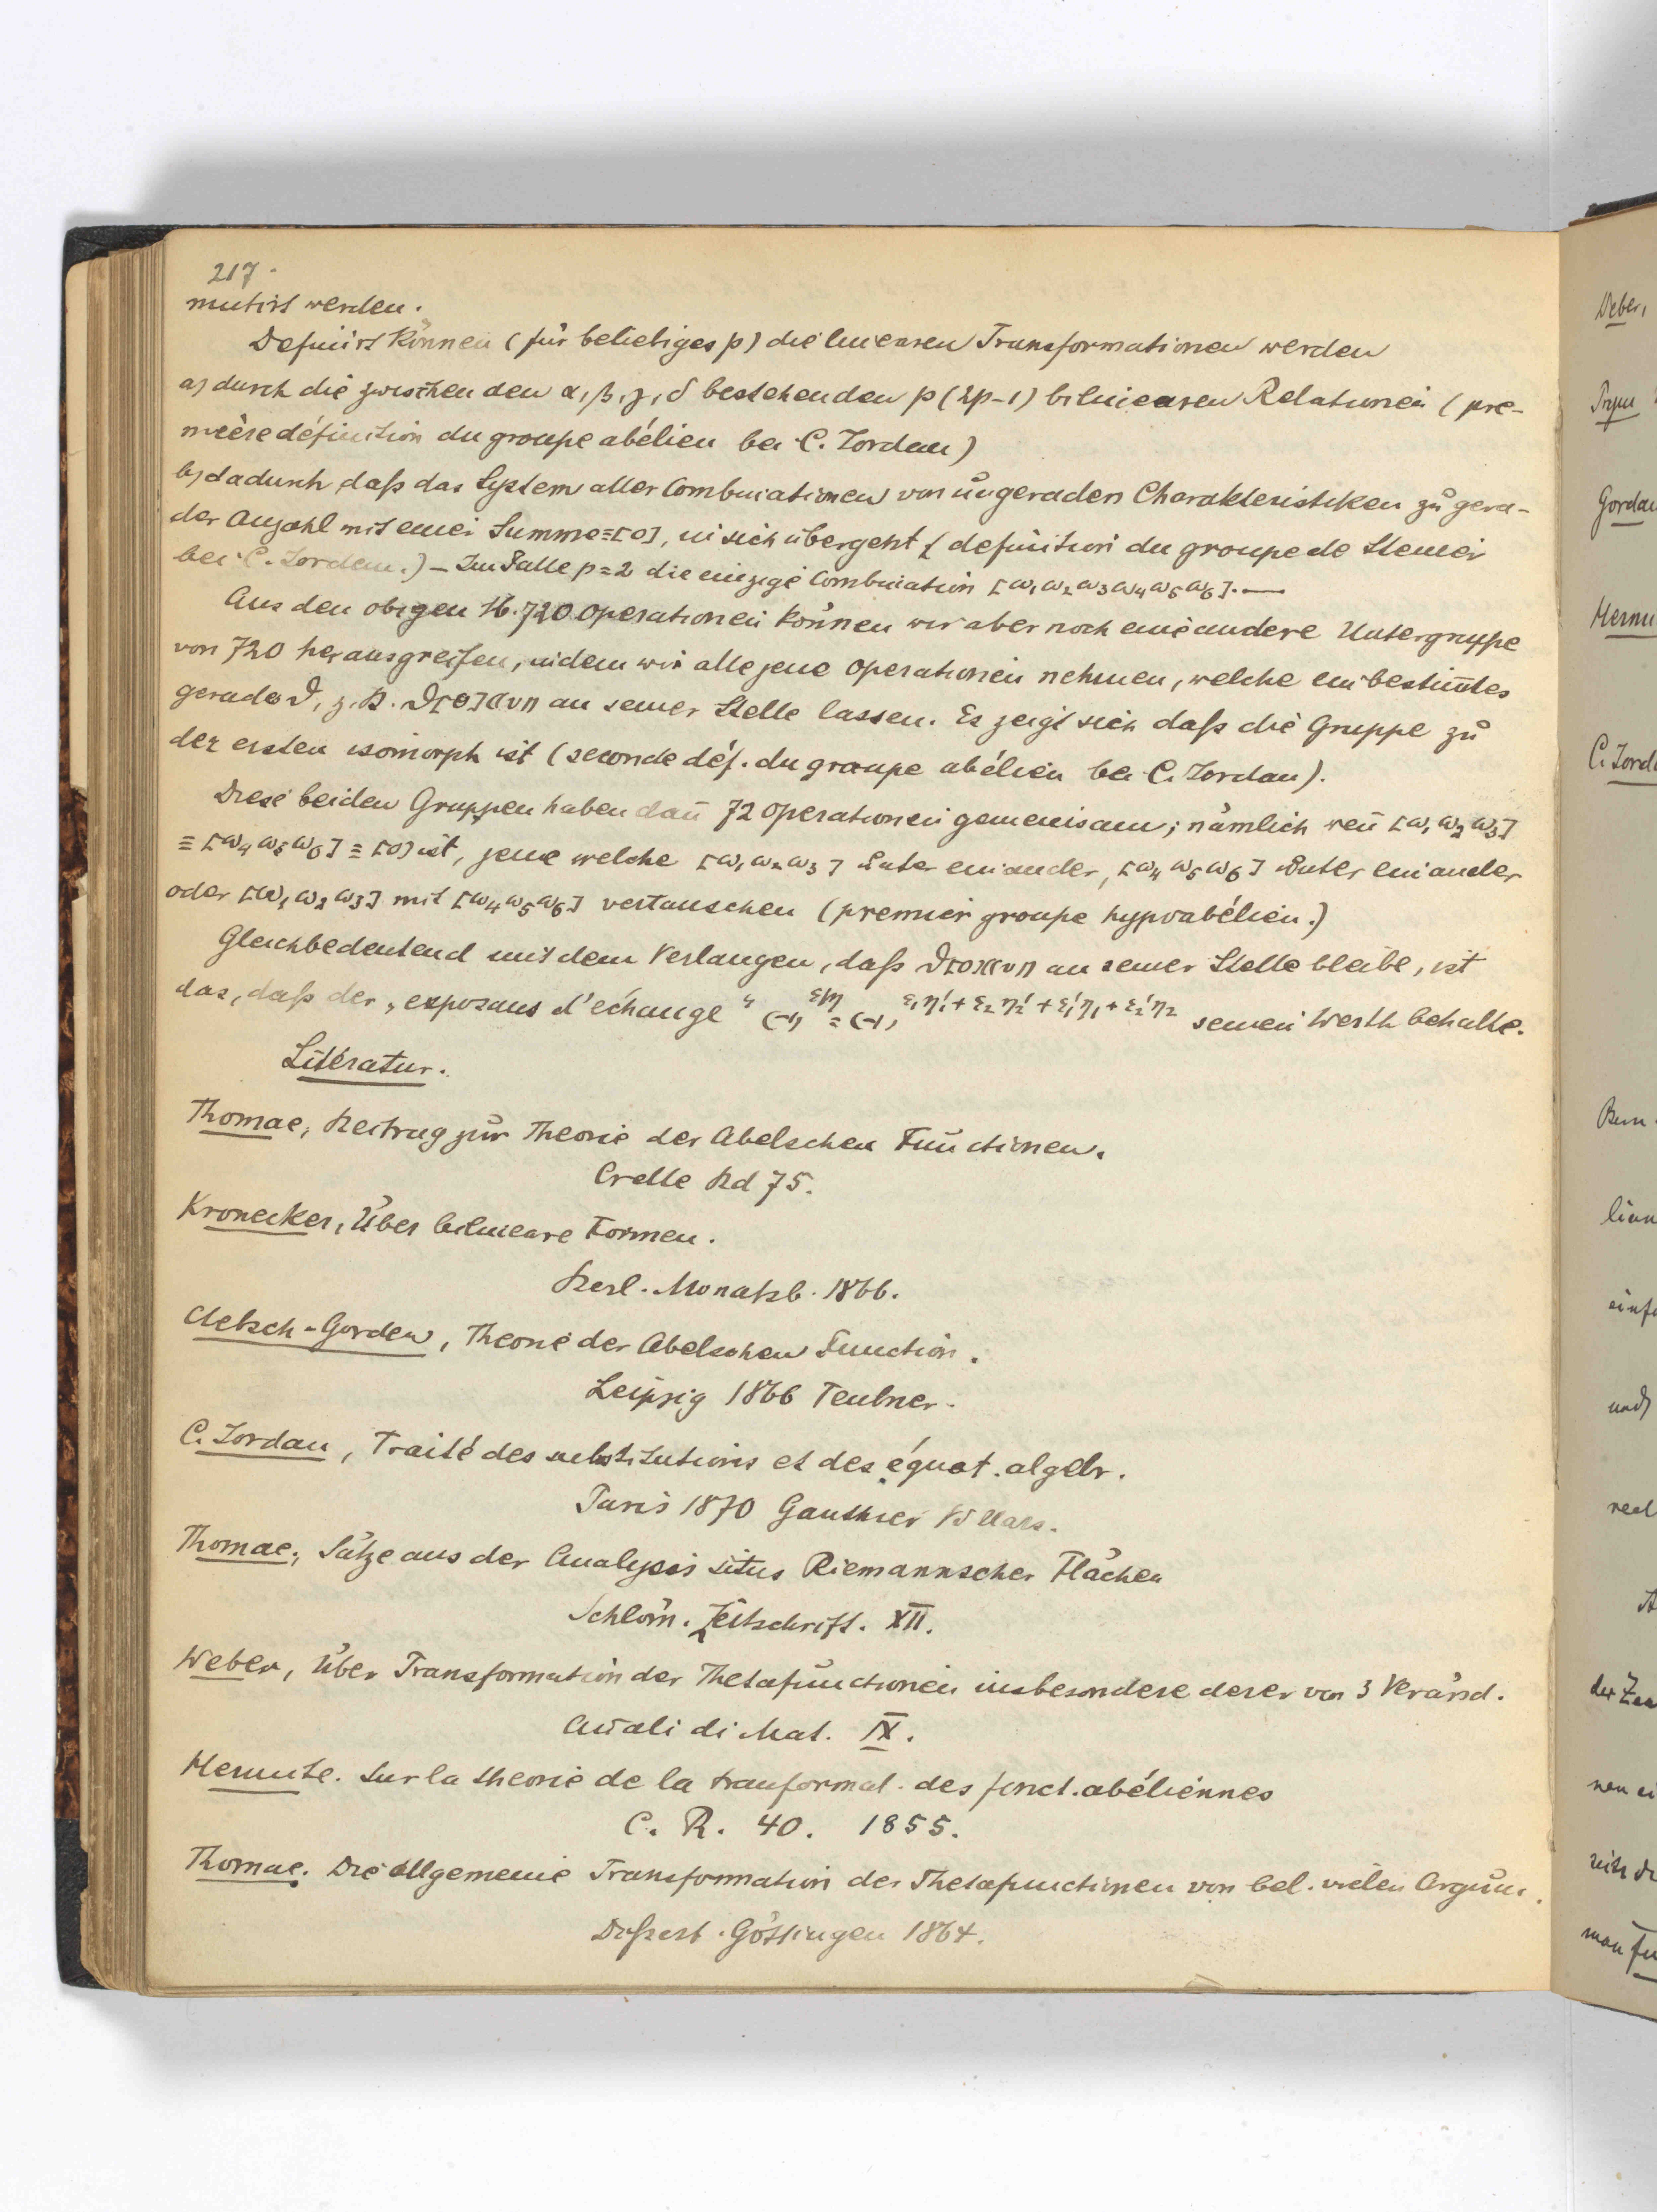 217.
mutirt werden.
Definirt können (für beliebiges p) die linearen Transformationen werden
a) durch die zwischen den α, β, γ, δ bestehenden p(2p-1) bilinearen Relationen (pre-
mière définition du groupe abélien bei C. Jordan)
b) dadurch, daß das System aller Combinationen von ungeraden Charakteristiken zu gera-
der Anzahl mit einer Summe ≡ [0], in sich übergeht (definition du groupe de Steiner
bei C. Jordan.) – Im Falle p = 2 die einzige Combination [ω₁ω₂ω₃ω₄ω₅ω₆]. —
Aus den obigen 16.720 Operationen können wir aber noch eine andere Untergruppe
von 720 herausgreifen, indem wir alle jene Operationen nehmen, welche ein bestim̄tes
gerade ϑ, z. B. ϑ[0]((v)) an seiner Stelle lassen. Es zeigt sich daß die Gruppe zu
der ersten isomorph ist (seconde déf. du groupe abélien bei C. Jordan).
Diese beiden Gruppen haben dan̄ 72 Operationen gemeinsam; nämlich wen̄ [ω₁ω₂ω₃]
≡ [ω₄ω₅ω₆] ≡ [0] ist, jene welche [ω₁ω₂ω₃] unter einander, [ω₄ω₅ω₆] unter einander
oder [ω₁ω₂ω₃] mit [ω₄ω₅ω₆] vertauschen (premier groupe hypoabélien.)
Gleichbedeutend mit dem Verlangen, daß ϑ[0]((v)) an seiner Stelle bleibe, ist
das, daß der „exposans d'échange" (-1)^{ε|η} = (-1)^{ε₁η₁' + ε₂η₂' + ε₁'η₁ + ε₂'η₂} seinen Werth behalte.
Literatur.
Thomae, Beitrag zur Theorie der Abelschen Functionen.
Crelle Bd 75.
Kronecker, Über bilineare Formen.
Berl. Monatsb. 1866.
Clebsch-Gordan, Theorie der Abelschen Function.
Leipzig 1866 Teubner.
C. Jordan, Traité des substitutions et des équat. algebr.
Paris 1870 Gauthier Villars.
Thomae, Sätze aus der Analysis situs Riemannscher Flächen
Schlöm. Zeitschrift. XII.
Weber, Über Transformation der Thetafunctionen insbesondere derer von 3 Veränd.
An̄ali di Mat. IX.
Hermite. Sur la theorie de la tranformat. des fonct. abéliennes
C. R. 40. 1855.
Thomae. Die allgemeine Transformation der Thetafunctionen von bel. vielen Argum.
Dißert. Göttingen 1864.
Weber,
Prym
Gordan
C. Jord